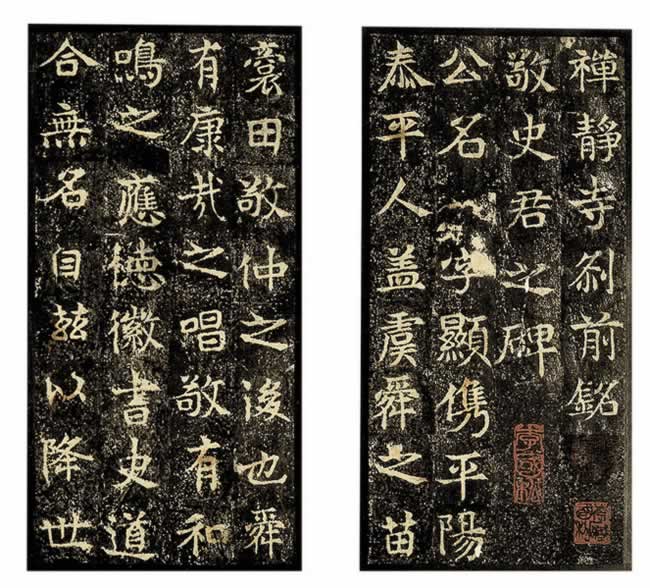 禪靜寺刹前銘
敬史君之碑
公名字顯儁平陽
泰平人盖虞舜之苗
裔田敬仲之後也舜
有康哉之唱敬有和
鳴之應徳徽書史道
合無名自兹以降世